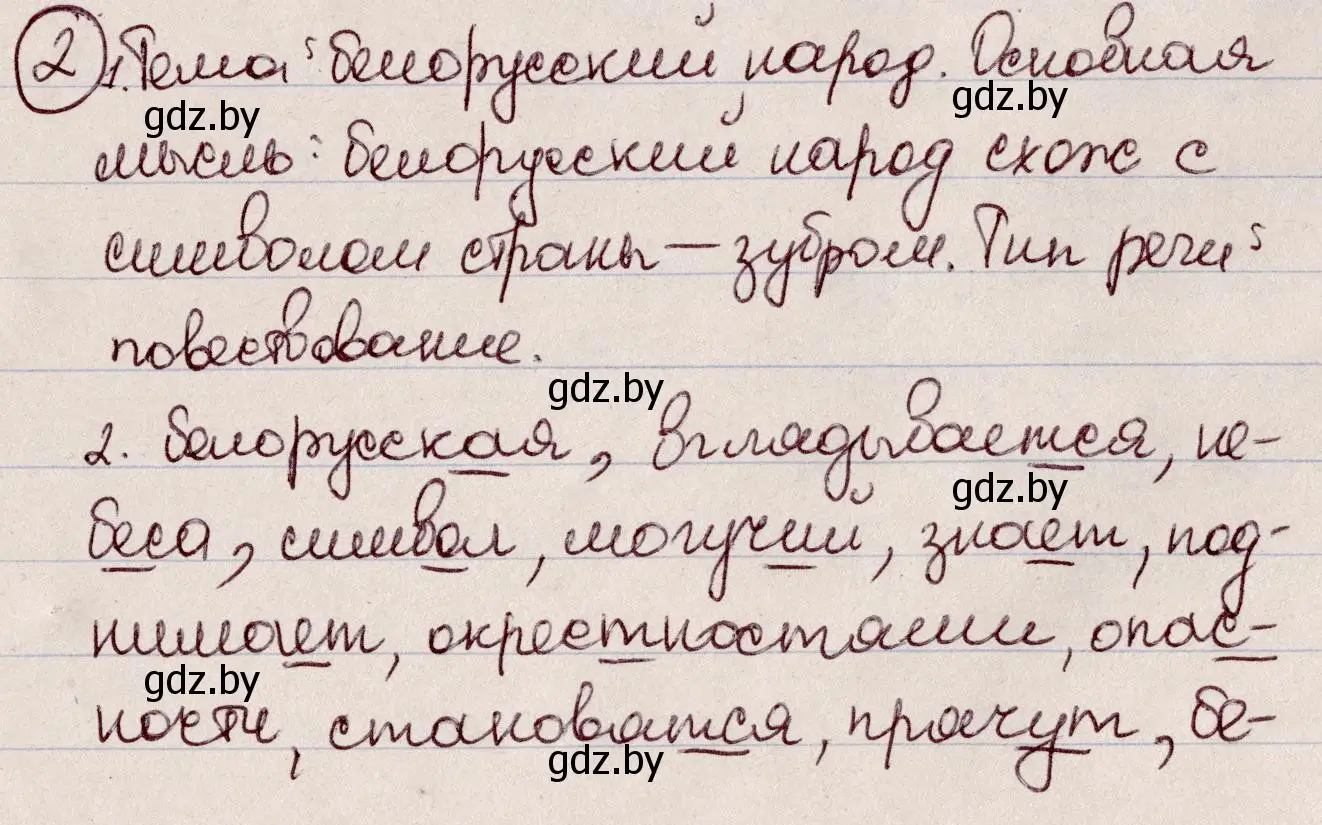 2 1. Тема: белорусский народ. Основная
gdz.by gdz.by
мысль: белорусский народ схож с
символом страны — зубром. Тип речи:
повествование.
gdz.by
2. белорусская, вглядывается, не-
gdz.by
беса, символ, могучий, знает, под-
нимает, окрестностями, опас-
gdz.by
ности, становятся, прячут, бе-
gdz.by